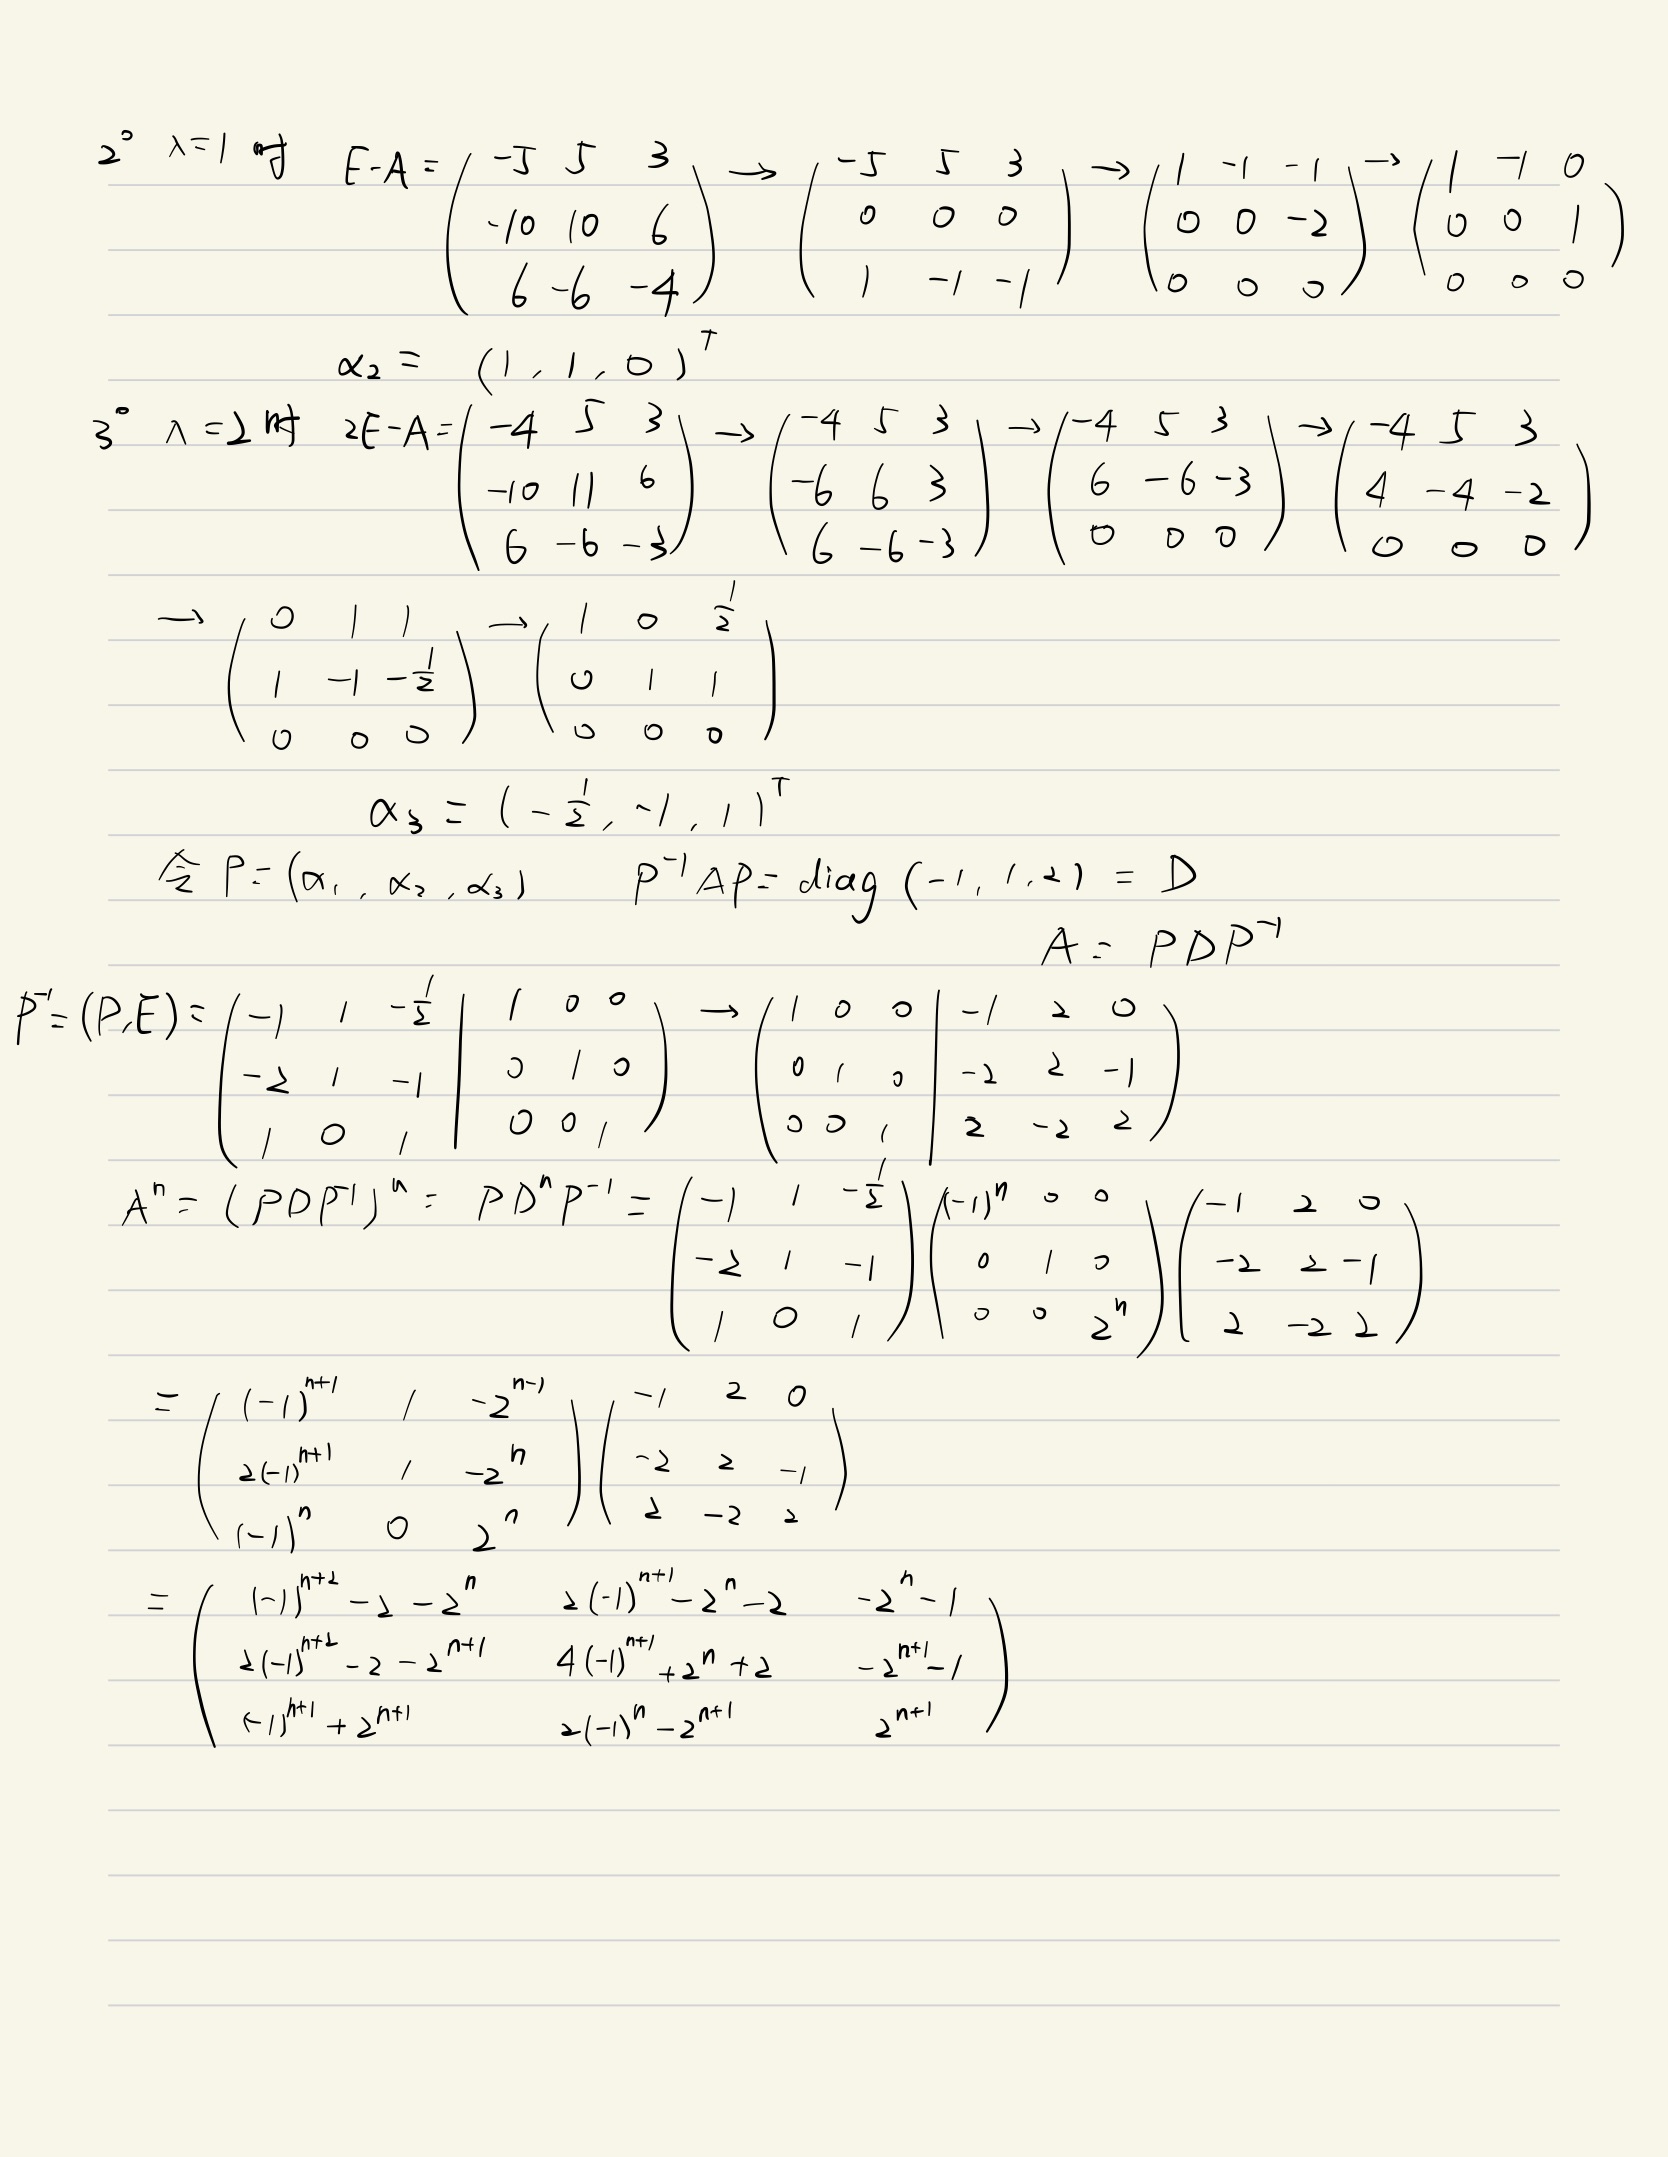 2° λ=1时 E-A = ( -5 5 3 ; -10 10 6 ; 6 -6 -4 ) → ( -5 5 3 ; 0 0 0 ; 1 -1 -1 ) → ( 1 -1 -1 ; 0 0 -2 ; 0 0 0 ) → ( 1 -1 0 ; 0 0 1 ; 0 0 0 )
α₂ = (1, 1, 0)ᵀ
3° λ=2时 2E-A = ( -4 5 3 ; -10 11 6 ; 6 -6 -3 ) → ( -4 5 3 ; -6 6 3 ; 6 -6 -3 ) → ( -4 5 3 ; 6 -6 -3 ; 0 0 0 ) → ( -4 5 3 ; 4 -4 -2 ; 0 0 0 )
→ ( 0 1 1 ; 1 -1 -1/2 ; 0 0 0 ) → ( 1 0 1/2 ; 0 1 1 ; 0 0 0 )
α₃ = (-1/2, -1, 1)ᵀ
令 P = (α₁, α₂, α₃) P⁻¹AP = diag (-1, 1, 2) = D
A = PDP⁻¹
P⁻¹ = (P,E) = ( -1 1 -1/2 | 1 0 0 ; -2 1 -1 | 0 1 0 ; 1 0 1 | 0 0 1 ) → ( 1 0 0 | -1 2 0 ; 0 1 0 | -2 2 -1 ; 0 0 1 | 2 -2 2 )
Aⁿ = (PDP⁻¹)ⁿ = PDⁿP⁻¹ = ( -1 1 -1/2 ; -2 1 -1 ; 1 0 1 ) ( (-1)ⁿ 0 0 ; 0 1 0 ; 0 0 2ⁿ ) ( -1 2 0 ; -2 2 -1 ; 2 -2 2 )
= ( (-1)ⁿ⁺¹ 1 -2ⁿ⁻¹ ; 2(-1)ⁿ⁺¹ 1 -2ⁿ ; (-1)ⁿ 0 2ⁿ ) ( -1 2 0 ; -2 2 -1 ; 2 -2 2 )
= ( (-1)ⁿ⁺² -2 -2ⁿ 2(-1)ⁿ⁺¹ -2ⁿ -2 -2ⁿ -1 ; 2(-1)ⁿ⁺² -2 -2ⁿ⁺¹ 4(-1)ⁿ⁺¹ +2ⁿ +2 -2ⁿ⁺¹ -1 ; (-1)ⁿ⁺¹ + 2ⁿ⁺¹ 2(-1)ⁿ - 2ⁿ⁺¹ 2ⁿ⁺¹ )